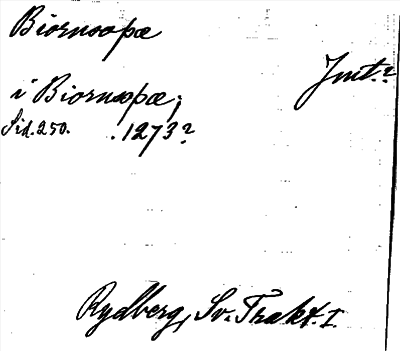 Biornsopæ
Jmt.?
i Biornsopæ;
Sid. 250. . 1273?
Rydberg, Sv. Trakt. I.